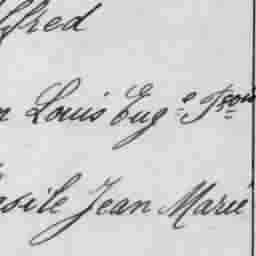 lfred
n Louis Eug.e Fçois
esile Jean Marie